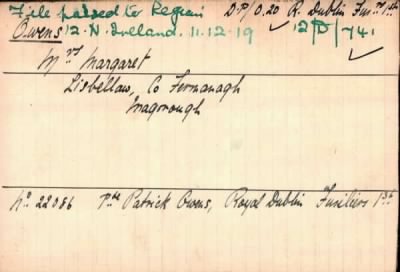 File passed to Region D.P/0.20 R. Dublin Fusrs 1st
Owens 12. N. Ireland. 11.12.19 12/D/741
Mrs Margaret
Lisbellaw, Co Fermanagh
No 22086 Pte Patrick Owens, Royal Dublin Fusiliers 1st